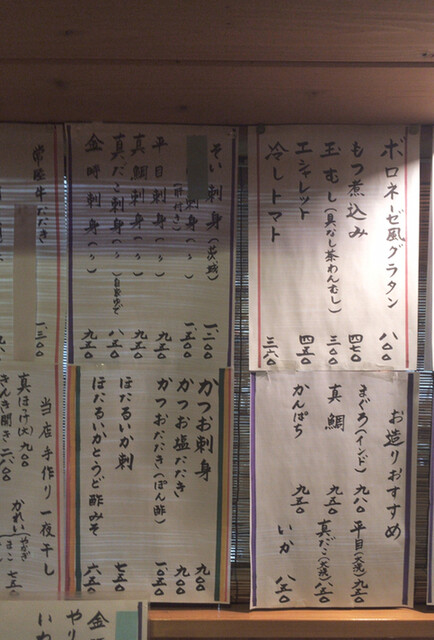 ボロネーゼ風グラタン 八〇〇
もつ煮込み 四七〇
玉むし(具なし茶わんむし) 三〇〇
エシャレット 四五〇
冷しトマト 三六〇
そい刺身(茨城) 一、二〇〇
平目刺身(〃) 九五〇
真鯛刺身(〃) 九五〇
真だこ刺身(〃)自家ゆで 八五〇
金時刺身(〃) 九五〇
常陸牛たたき 一、三〇〇
お造りおすすめ
まぐろ(インド) 九八〇
真鯛 九五〇
かんぱち 九五〇
平目(天然) 九五〇
真だこ(天然) 八五〇
いか 八五〇
かつお刺身 九〇〇
かつお塩だたき 九〇〇
かつおたたき(ぽん酢) 一〇五〇
ほたるいか刺 七五〇
ほたるいかとうど酢みそ 六五〇
当店手作り一夜干し
真ほっけ(大) 九〇〇
きんき開き 二八〇〇
かれい
やなぎ
まこ
七五〇
金
やり
いわ